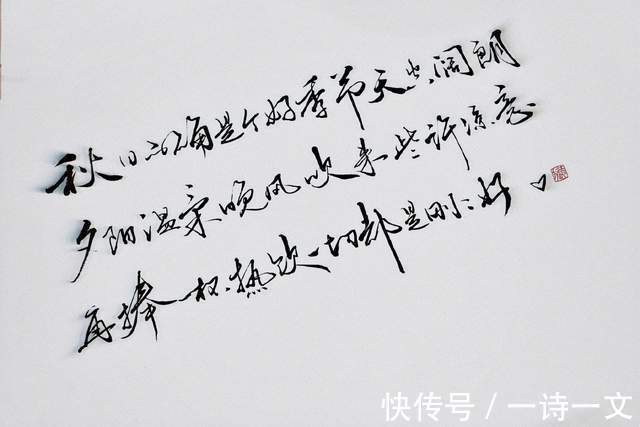 秋日的确是个好季节天空阔朗
夕阳温柔晚风吹来些许凉意
再捧一杯热饮一切都是刚刚好
快传号/一诗一文